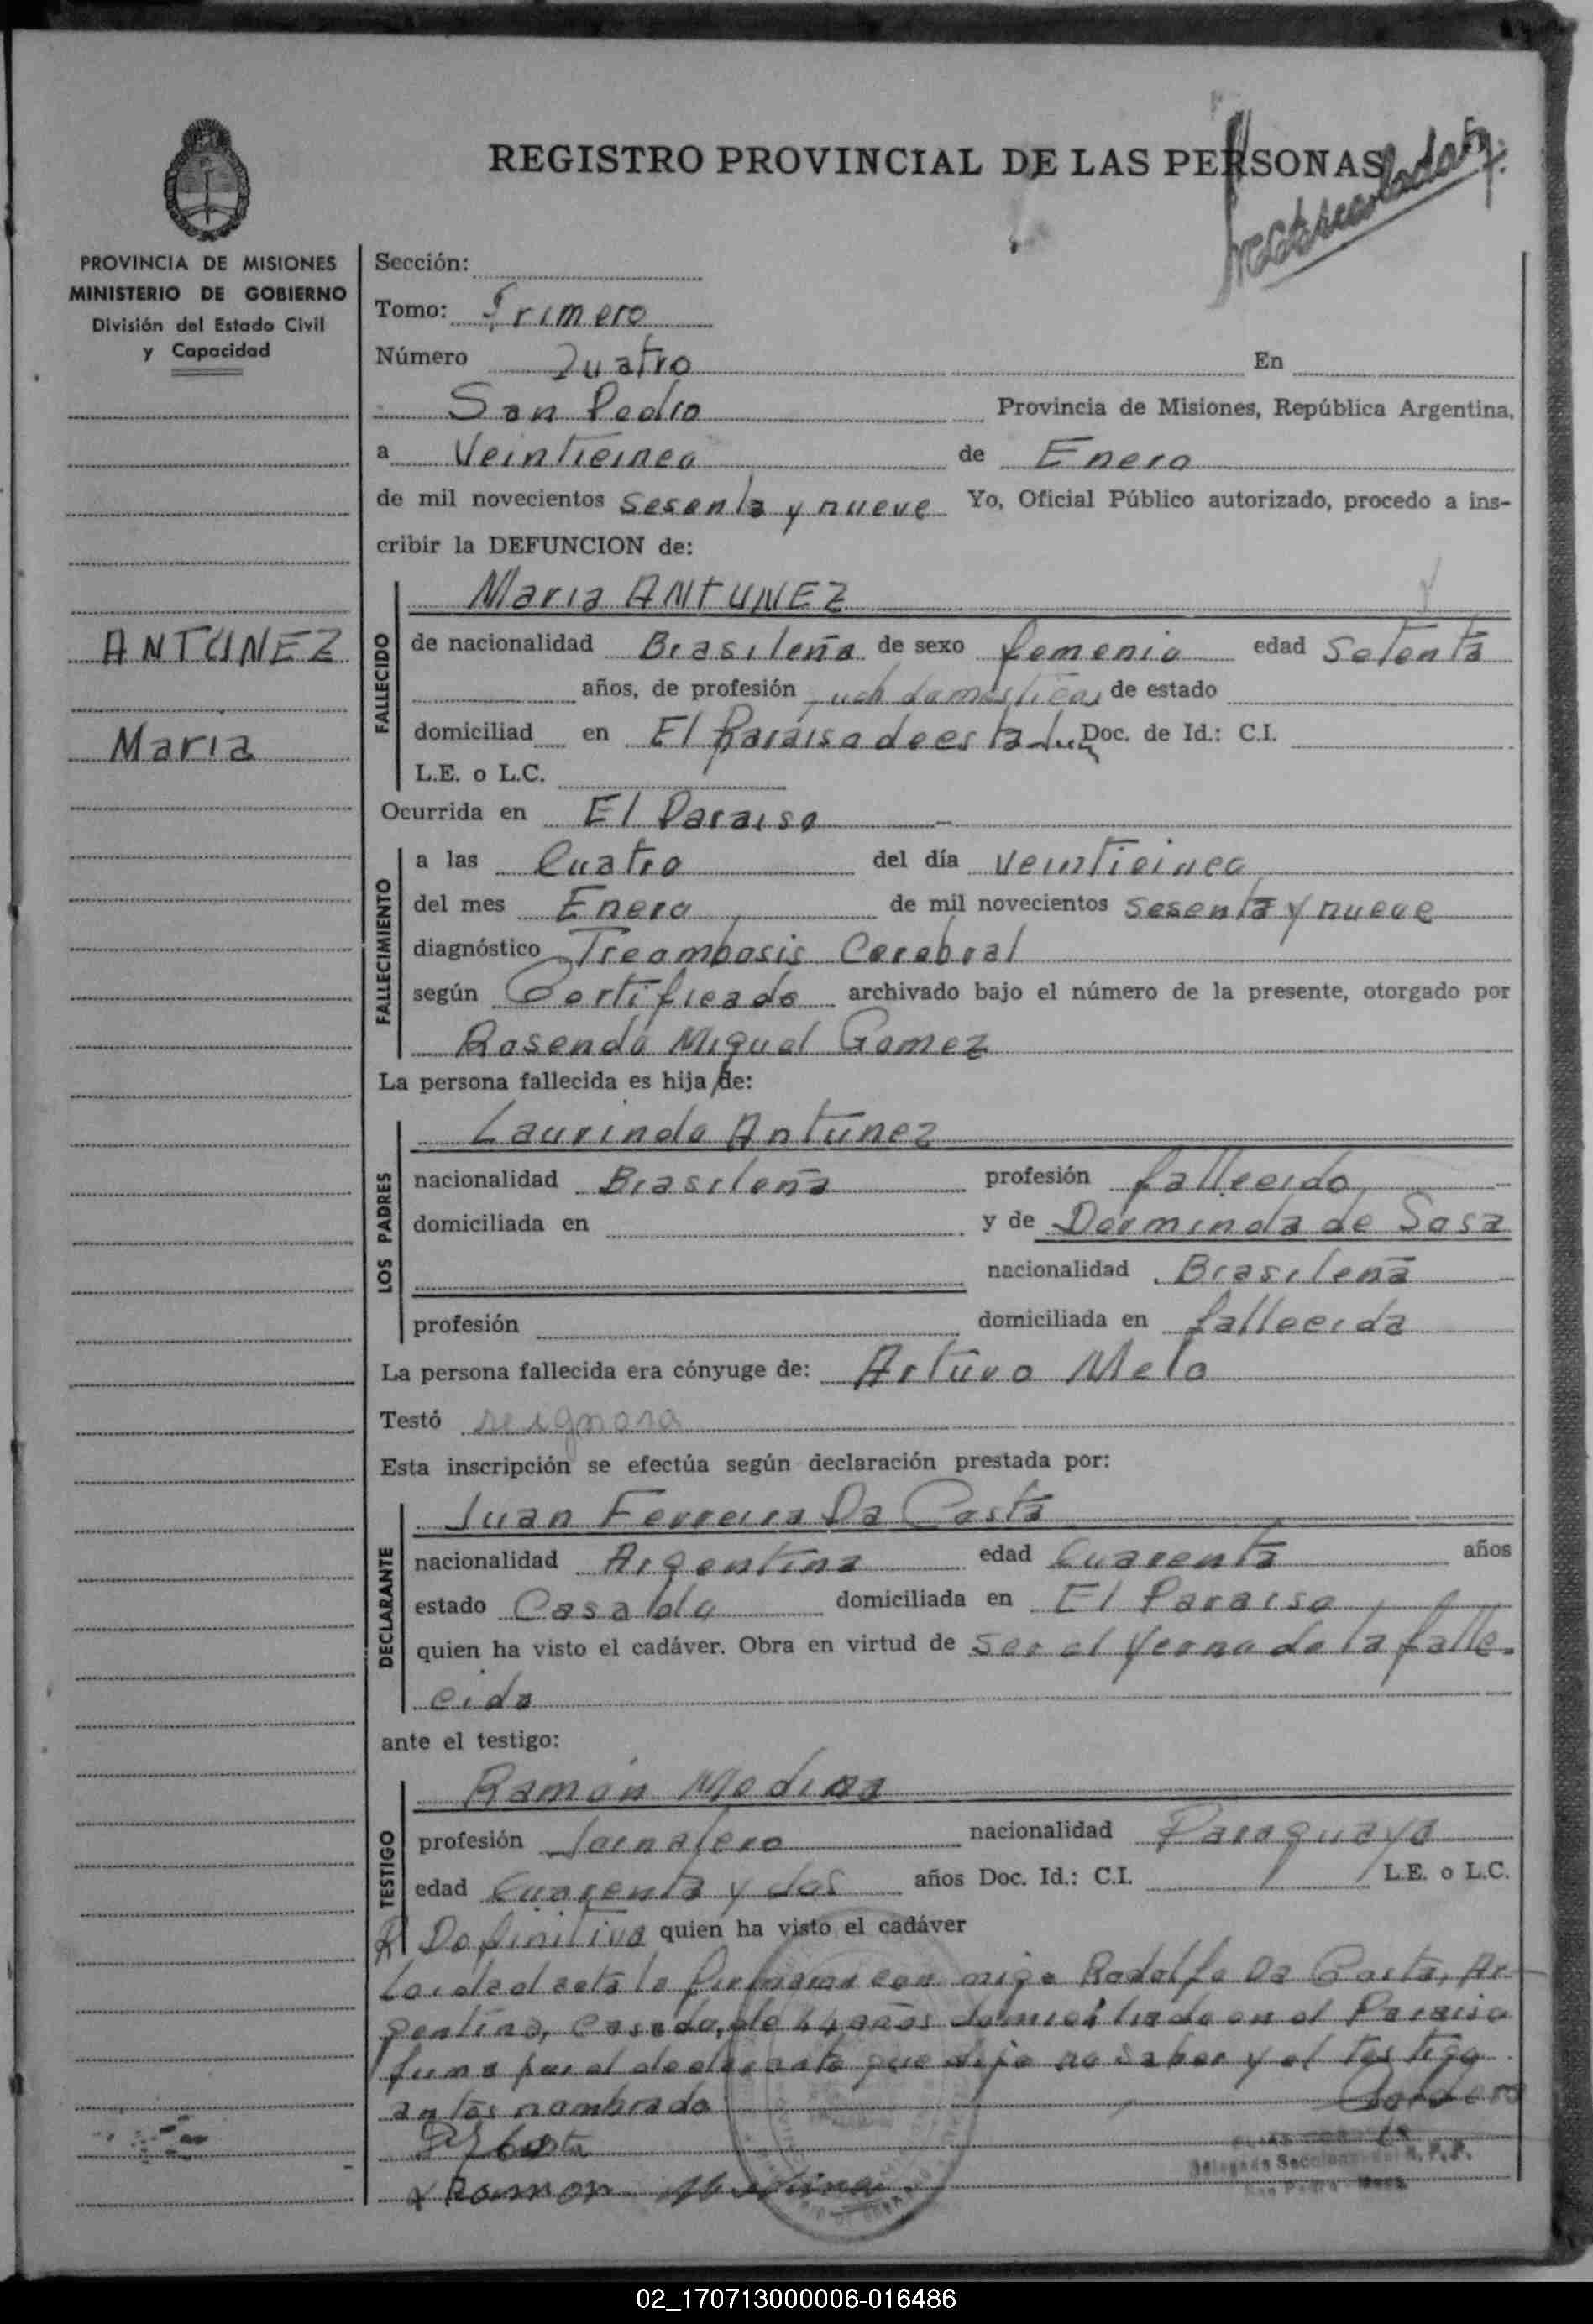 REGISTRO PROVINCIAL DE LAS PERSONAS
PROVINCIA DE MISIONES
MINISTERIO DE GOBIERNO
División del Estado Civil
y Capacidad
ANTUNEZ
Maria
Sección:
Tomo: Primero
Número Quatro En
San Pedro Provincia de Misiones, República Argentina,
a Veinticinco de Enero
de mil novecientos Sesenta y nueve Yo, Oficial Público autorizado, procedo a ins-
cribir la DEFUNCION de:
FALLECIDO
Maria ANTUNEZ
de nacionalidad Brasileña de sexo femenio edad Setenta
años, de profesión de estado
domiciliad en El Paraiso Doc. de Id.: C.I.
L.E. o L.C.
Ocurrida en El Paraiso
FALLECIMIENTO
a las Cuatro del día Veinticinco
del mes Enero de mil novecientos Sesenta y nueve
diagnóstico Treombosis Cerebral
según Certificado archivado bajo el número de la presente, otorgado por
Rosendo Miguel Gomez
La persona fallecida es hija de:
LOS PADRES
Laurindo Antunez
nacionalidad Brasileña profesión fallecido
domiciliada en y de Dorminda de Sosa
nacionalidad Brasileña
profesión domiciliada en fallecida
La persona fallecida era cónyuge de: Arturo Melo
Testó se ignora
Esta inscripción se efectúa según declaración prestada por:
DECLARANTE
Juan Ferreira Da Costa
nacionalidad Argentina edad Cuarenta años
estado Casado domiciliada en El Paraiso
quien ha visto el cadáver. Obra en virtud de Ser el Yerno de la falle-
cida
ante el testigo:
TESTIGO
Ramón Medina
profesión Jornalero nacionalidad Paraguaya
edad Cuarenta y dos años Doc. Id.: C.I. L.E. o L.C.
R Definitiva quien ha visto el cadáver
Leida el acta la firman con migo Rodolfo Da Costa, Ar-
gentino, Casado, de 44 años domiciliado en el Paraiso
firma por el declarante que dijo no saber y el testigo
antes nombrado
Ramon Medina
02_170713000006-016486